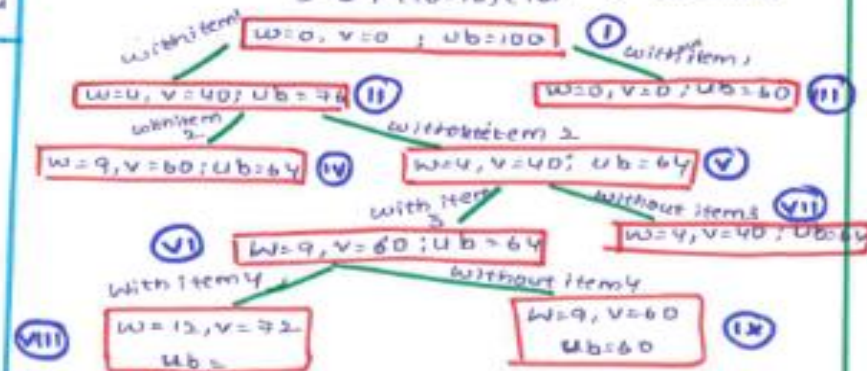 with item 1
w=0, v=0 ; ub=100
I
without item 1
w=4, v=40; ub=76
II
w=0, v=0; ub=60
III
with item 2
without item 2
w=9, v=60; ub=64
IV
w=4, v=40; ub=64
V
with item 3
without item 3
VII
VI
w=9, v=60; ub=64
w=4, v=40; ub=64
with item 4
without item 4
VIII
w=12, v=72
ub=
w=9, v=60
ub=60
IX